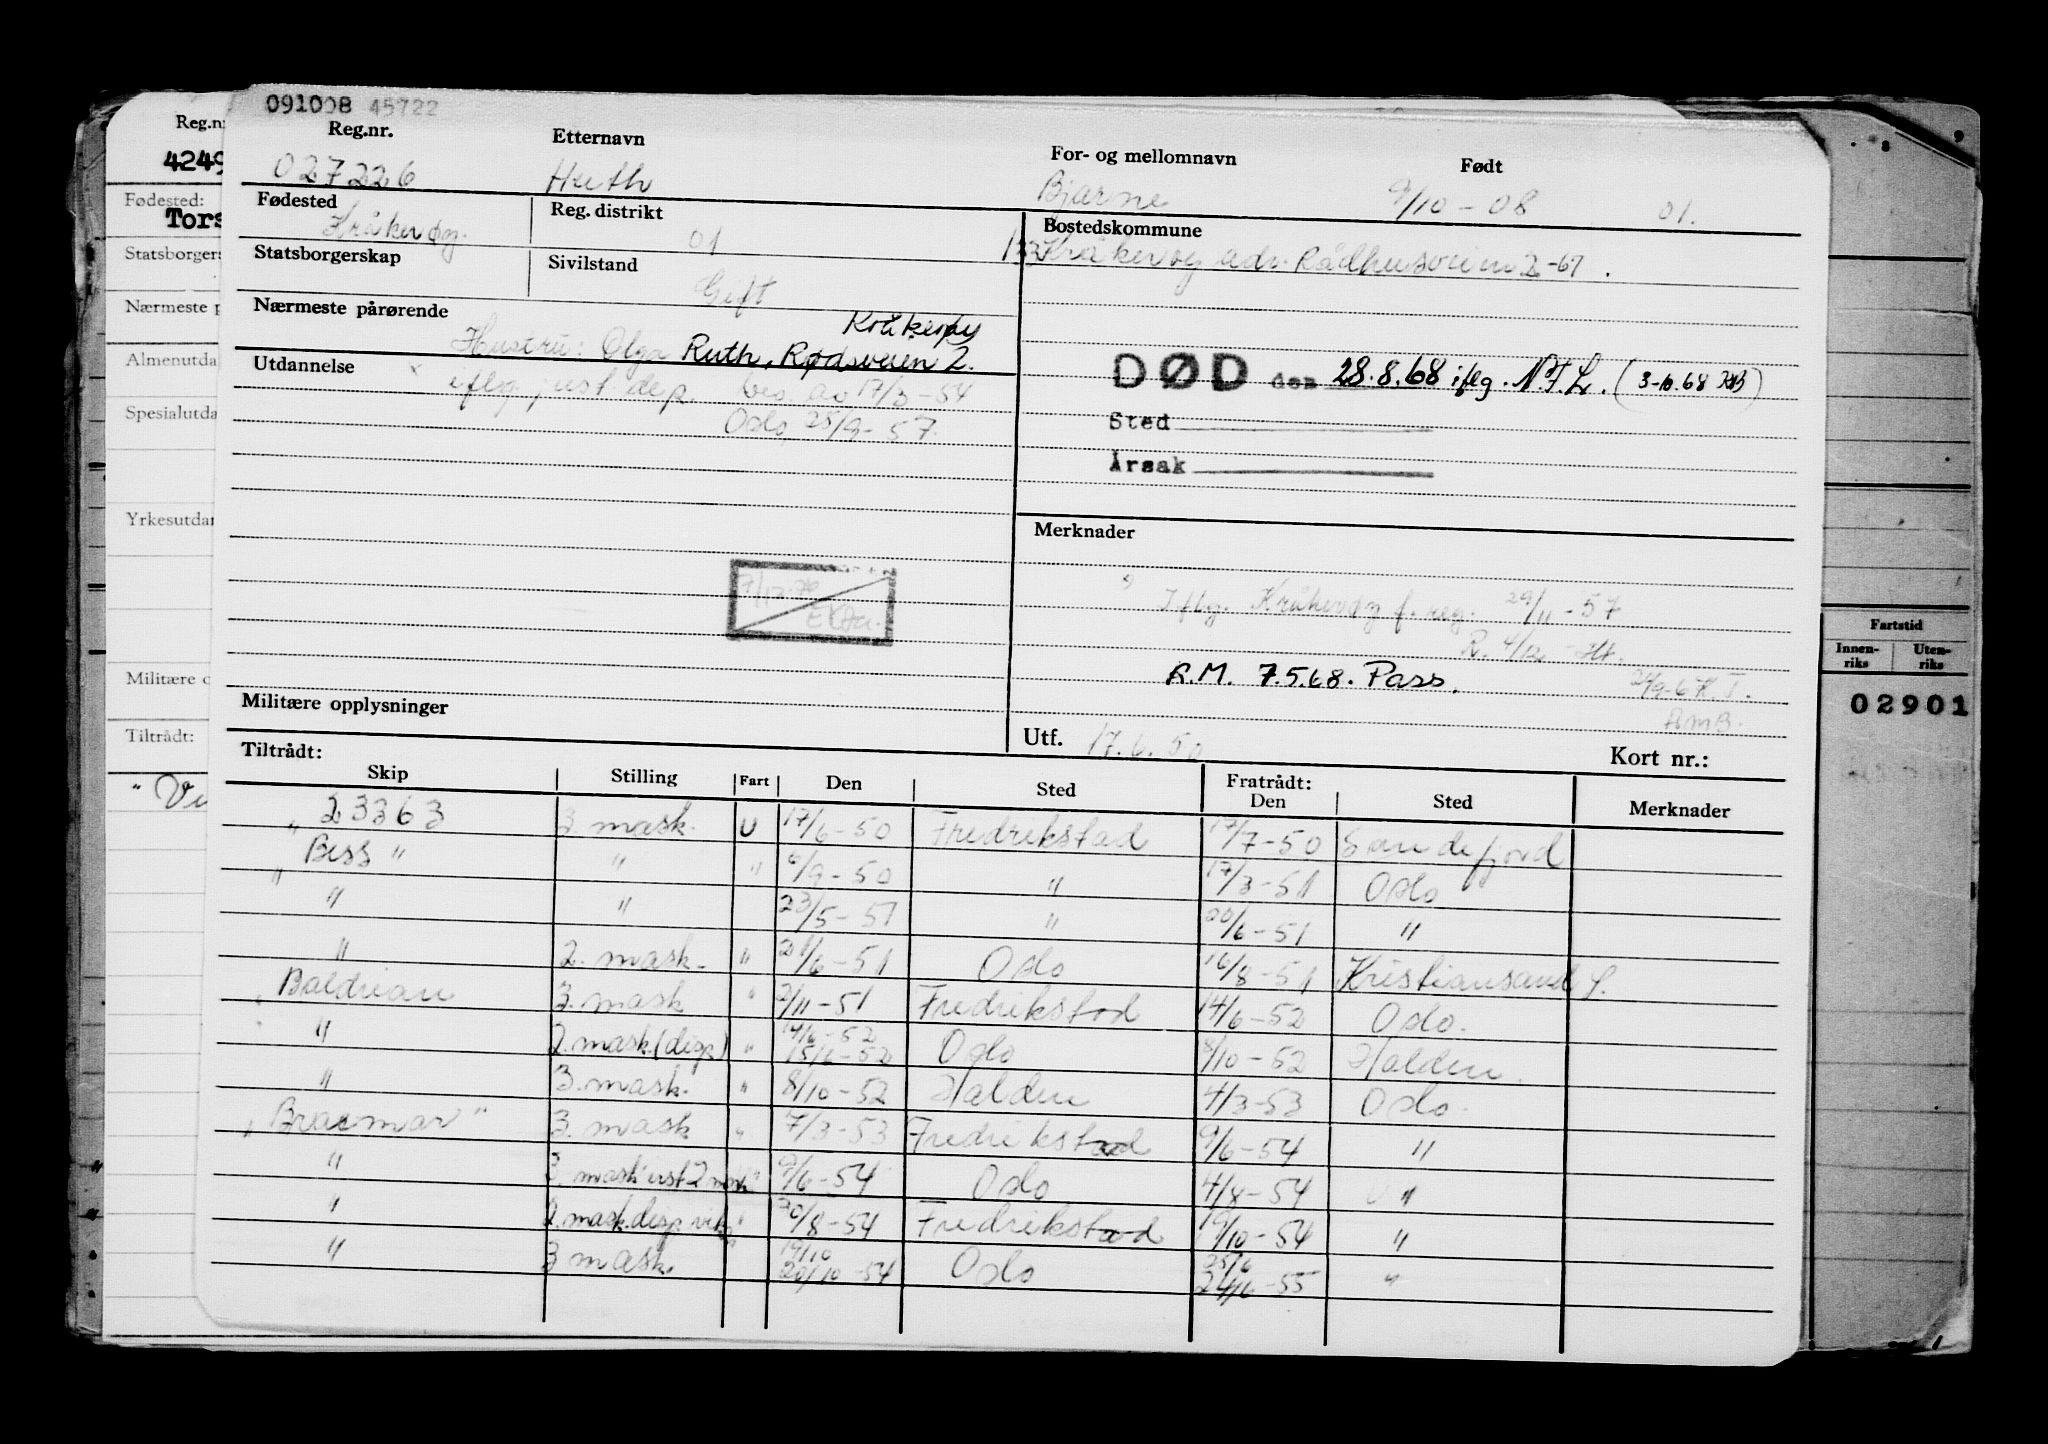 091008 45722
Reg.nr. Etternavn For- og mellomnavn Født
027226 Huth Bjarne 9/10-08 01.
Fødested Reg. distrikt Bostedskommune
Kråkerøy. 01 Kråkerøy adr. Rådhusveien 2 -67.
Statsborgerskap Sivilstand
Gift
Nærmeste pårørende
Kråkerøy
Hustru: Olga Ruth, Rødsveien 2.
Utdannelse
iflg. just dep. bev. av 17/3-54
Oslo, 25/9-57.
DØD den 28.8.68 iflg. N.T.L. (3-10.68 RB)
Sted
Årsak
Merknader
Iflg. Kråkerøy f.reg. 29/11-57
R. 4/12
R.M. 7.5.68. Pass.
AMB.
Militære opplysninger
Utf. 17.6.50 Kort nr.:
Tiltrådt: Fratrådt:
Skip Stilling Fart Den Sted Den Sted Merknader
23363 3 mask. U 17/6-50 Fredrikstad 17/7-50 Sandefjord
"Bess" " " 6/9-50 " 17/3-51 Oslo
" " " 23/5-51 " 20/6-51 "
" 2. mask. " 21/6-51 Oslo 16/8-51 Kristiansand S.
Baldrian 3. mask " 2/11-51 Fredrikstad 14/6-52 Oslo.
" 2. mask (disp) " 14/6-52 15/6-52 Oslo 8/10-52 Halden.
" 3. mask. " 8/10-52 Halden 4/3-53 Oslo.
"Braemar" 3. mask " 7/3-53 Fredrikstad 9/6-54 "
" 3. mask 2 mask 9/6-54 Oslo 4/8-54 "
" 2. mask. disp. " 20/8-54 Fredrikstad 19/10-54 "
" 3 mask. 19/10 20/10-54 Oslo 25/6 24/6-55 "
Reg.nr
4249
Fødested:
Tors
Statsborgers
Nærmeste p
Almenutda
Spesialutda
Yrkesutdan
Militære o
Tiltrådt:
Fartstid
Innen-riks Uten-riks
02901